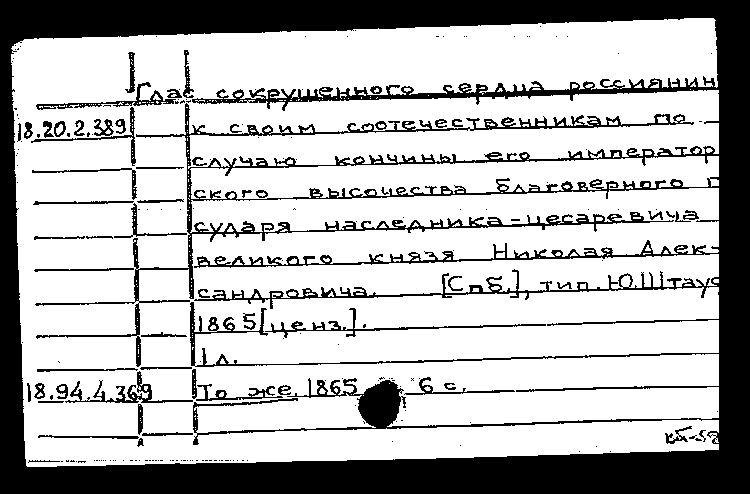 Глас сокрушенного сердца россиянин
18.20.2.389 к своим соотечественникам по
случаю кончины его император
ского высочества благоверного г
сударя наследника-цесаревича
великого князя Николая Алек-
сандровича. [Спб.], тип. Ю.Штауф
1865[ценз.].
1 л.
18.94.4.369 То же. 1865 6 с.